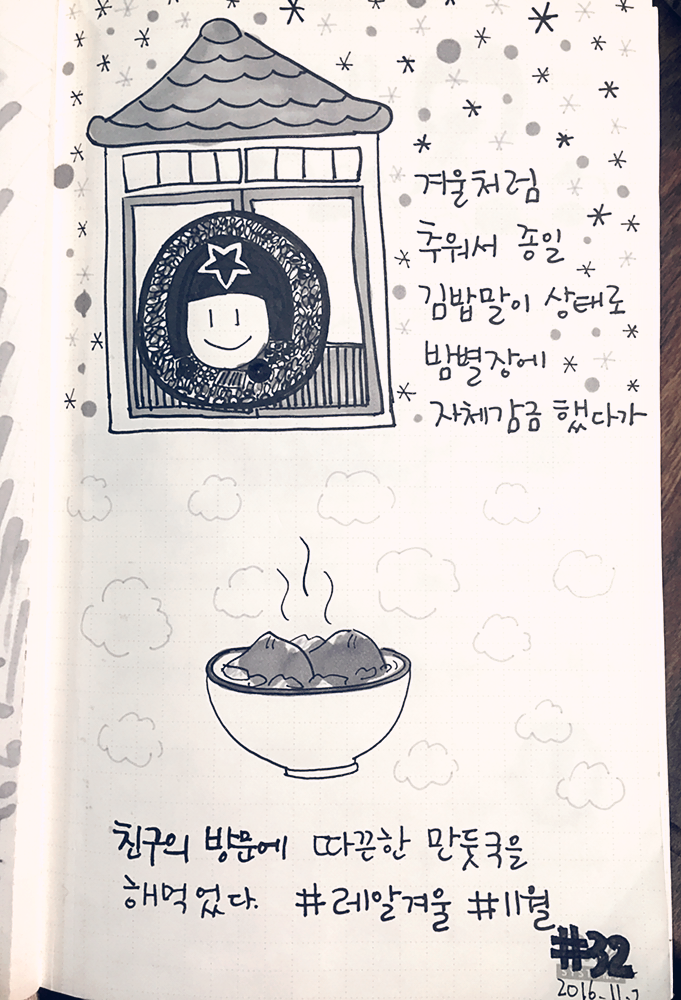 겨울처럼
추워서 종일
김밥말이 상태로
밤별장에
자체감금 했다가
친구의 방문에 따끈한 만둣국을
해먹었다. #레알겨울 #11월
#32